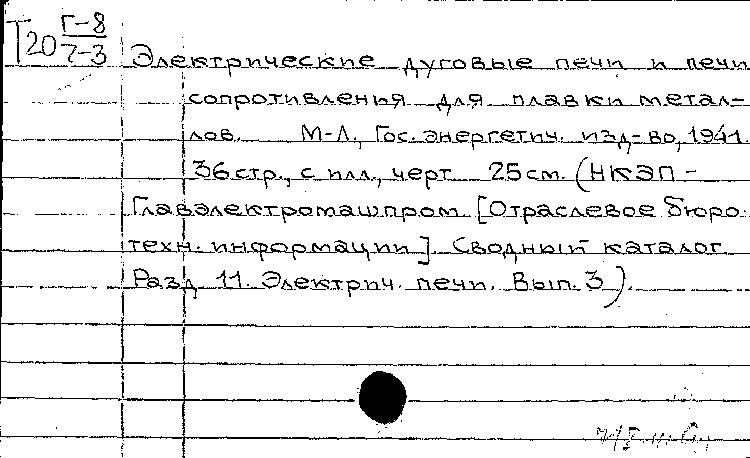 Т20 Г-8
7-3
Электрические дуговые печи и печи
сопротивления для плавки метал-
лов. М-Л., Гос. энергетич. изд-во, 1941.
36 стр., с илл., черт 25 см. (НКЭП -
Главэлектромашпром [Отраслевое бюро
техн. информации]. Сводный каталог
Разд 11. Электрич. печи. Вып. 3).